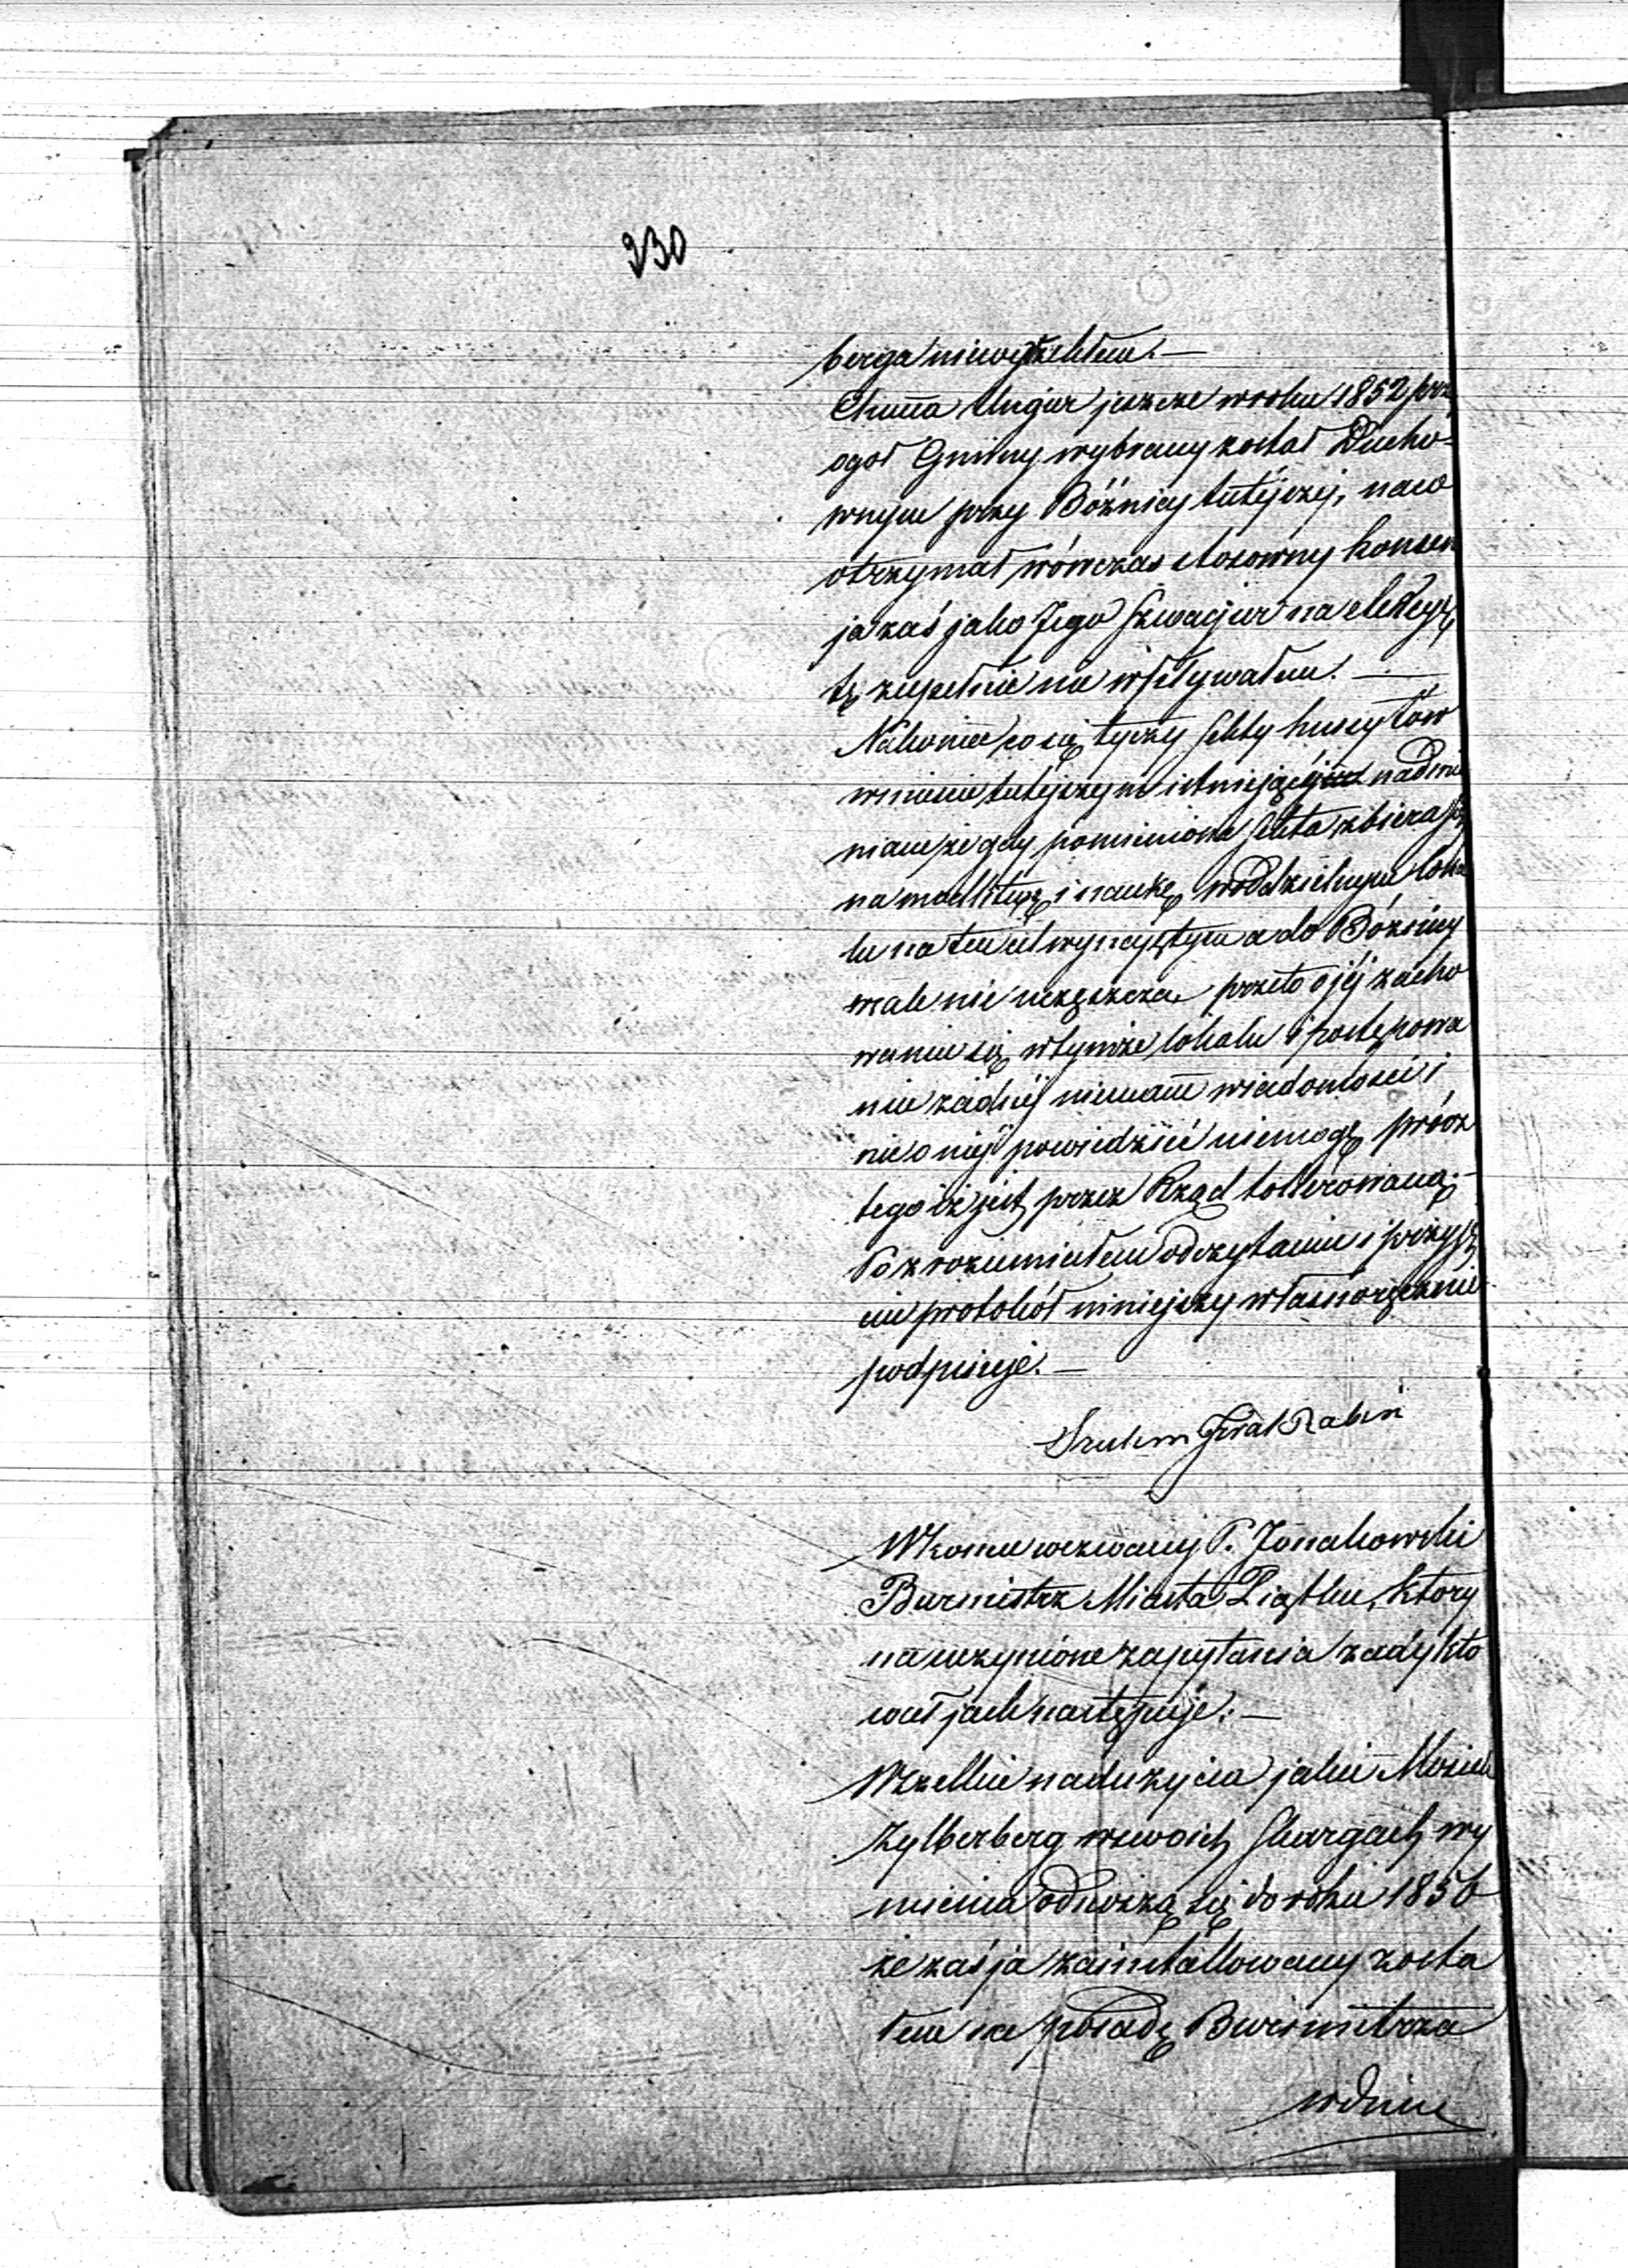 230
berga niewyszedłem. —
Chuna Ungier jeszcze w roku 1852 prz
ogół Gminy wybrany został Ducho-
wnym przy Bóżnicy tutéjszéj, na co
otrzymał wówczas stosowny konsen
ja zaś jako Jego Szwagier na elekcyę
tę zupełnie nie wpływałem. —
Nakoniec co się tyczy Sekty husytów
w mieście tutéjszym istniejącéj nadmie
niam że gdy pomieniona Sekta zbiera się
na modlitwę i naukę w oddzielnym loka
lu na ten cel wynajętym a do Bóżnicy
wcale nie uczęszcza, przeto o jéj zacho
waniu się w tymże lokalu i postępowa
niu żadnéj niemam wiadomości i
nic o niéj powiedzieć niemogę prócz
tego iż jest przez Rząd tollerowaną. —
Po zrozumiałem odczytaniu i przyję
ciu protokół niniejszy własnoręcznie
podpisuje. —
Szulim Rabin
W końcu wezwany P. Jonakowski
Burmistrz Miasta Piątku, który
na uczynione zapytania zadykto
wał jak następuje: —
Wszelkie nadużycia jakie Mosiek
Zylberberg w swoich Skargach wy
mienia odnoszą się do roku 1856
że zaś ja zainstallowany zosta
łem na posadę Burmistrza
w dniu